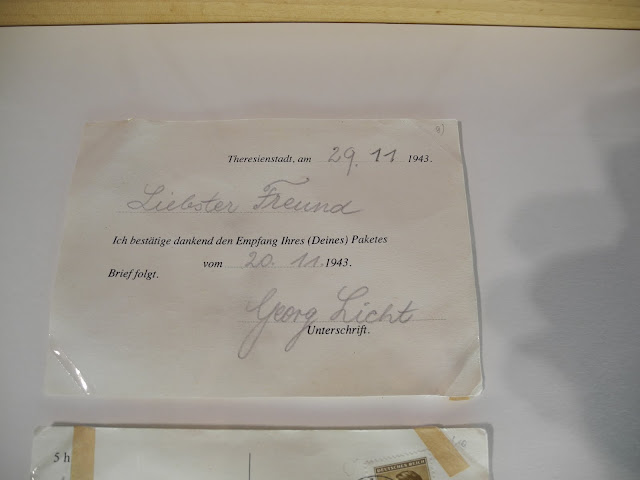 Theresienstadt, am 29. 11 1943.
Liebster Freund
Ich bestätige dankend den Empfang Ihres (Deines) Paketes
vom 20. 11. 1943.
Brief folgt.
Georg Licht
Unterschrift.
5 h
DEUTSCHES REICH